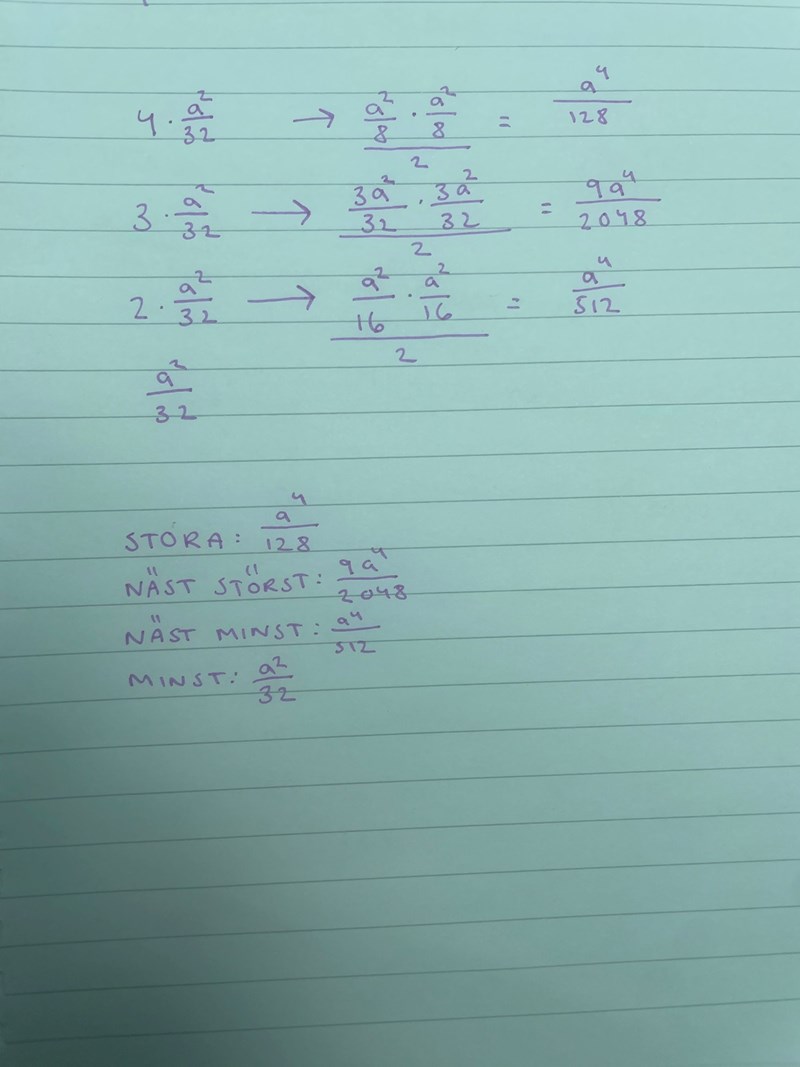 4 · a²/32 → (a²/8 · a²/8)/2 = a⁴/128
3 · a²/32 → (3a²/32 · 3a²/32)/2 = 9a⁴/2048
2 · a²/32 → (a²/16 · a²/16)/2 = a⁴/512
a²/32
STORA: a⁴/128
NÄST STÖRST: 9a⁴/2048
NÄST MINST: a⁴/512
MINST: a²/32